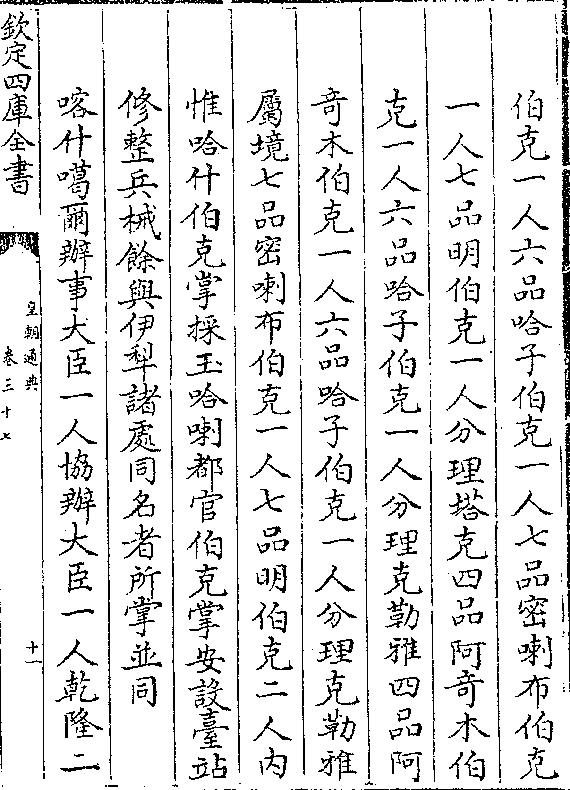 伯克一人六品哈子伯克一人七品密喇布伯克
一人七品明伯克一人分理塔克四品阿奇木伯
克一人六品哈子伯克一人分理克勒雅四品阿
奇木伯克一人六品哈子伯克一人分理克勒雅
屬境七品密喇布伯克一人七品明伯克二人内
惟哈什伯克掌採玉哈喇都官伯克掌安設臺站
修整兵械餘與伊犂諸處同名者所掌並同
喀什噶爾辦事大臣一人協辦大臣一人乾隆二
欽定四庫全書
皇朝通典
卷三十七
十一